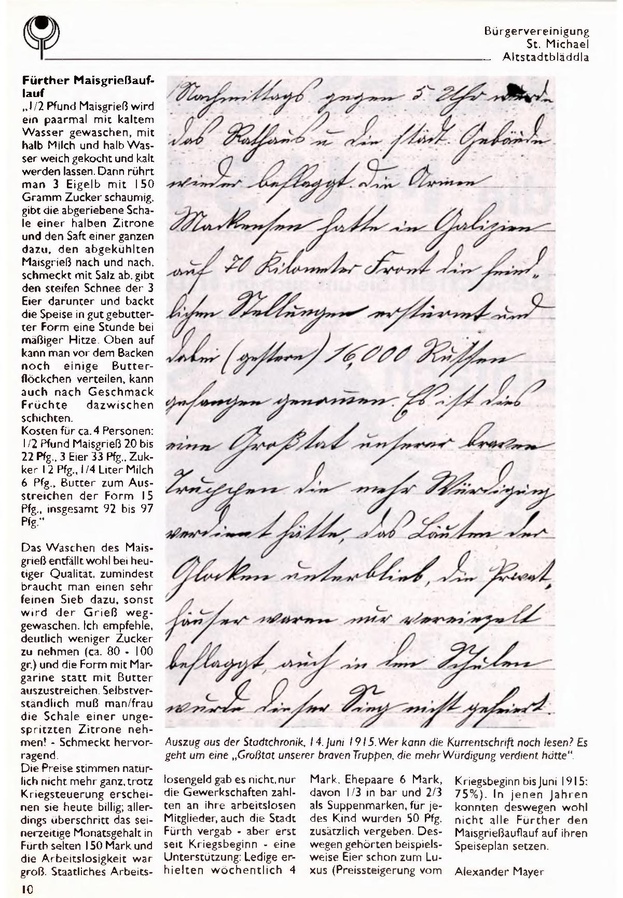 Bürgervereinigung
St. Michael
Altstadtbläddla
Fürther Maisgrießauf-
lauf
„1/2 Pfund Maisgrieß wird
ein paarmal mit kaltem
Wasser gewaschen, mit
halb Milch und halb Was-
ser weich gekocht und kalt
werden lassen. Dann rührt
man 3 Eigelb mit 150
Gramm Zucker schaumig,
gibt die abgeriebene Scha-
le einer halben Zitrone
und den Saft einer ganzen
dazu, den abgekühlten
Maisgrieß nach und nach,
schmeckt mit Salz ab, gibt
den steifen Schnee der 3
Eier darunter und backt
die Speise in gut gebutter-
ter Form eine Stunde bei
mäßiger Hitze. Oben auf
kann man vor dem Backen
noch einige Butter-
flöckchen verteilen, kann
auch nach Geschmack
Früchte dazwischen
schichten.
Kosten für ca. 4 Personen:
1/2 Pfund Maisgrieß 20 bis
22 Pfg., 3 Eier 33 Pfg., Zuk-
ker 12 Pfg., 1/4 Liter Milch
6 Pfg., Butter zum Aus-
streichen der Form 15
Pfg., insgesamt 92 bis 97
Pfg."
Das Waschen des Mais-
grieß entfällt wohl bei heu-
tiger Qualität, zumindest
braucht man einen sehr
feinen Sieb dazu, sonst
wird der Grieß weg-
gewaschen. Ich empfehle,
deutlich weniger Zucker
zu nehmen (ca. 80 - 100
gr.) und die Form mit Mar-
garine statt mit Butter
auszustreichen. Selbstver-
ständlich muß man/frau
die Schale einer unge-
spritzten Zitrone neh-
men! - Schmeckt hervor-
ragend.
Die Preise stimmen natür-
lich nicht mehr ganz, trotz
Kriegsteuerung erschei-
nen sie heute billig; aller-
dings überschritt das sei-
nerzeitige Monatsgehalt in
Fürth selten 150 Mark und
die Arbeitslosigkeit war
groß. Staatliches Arbeits-
Nachmittags gegen 5 Uhr wurde
das Rathaus u. die städt. Gebäude
wieder beflaggt. Die Armee
Mackensen hatte in Galizien
auf 70 Kilometer Front die feind-
lichen Stellungen erstürmt und
dabei (gestern) 16,000 Russen
gefangen genommen. Es ist dies
eine Großtat unserer braven
Truppen die mehr Würdigung
verdient hätte, das Läuten der
Glocken unterblieb, die Privat-
häuser waren nur vereinzelt
beflaggt, auch in den Schulen
wurde dieser Sieg nicht gefeiert.
Auszug aus der Stadtchronik, 14. Juni 1915. Wer kann die Kurrentschrift noch lesen? Es
geht um eine „Großtat unserer braven Truppen, die mehr Würdigung verdient hätte".
losengeld gab es nicht, nur
die Gewerkschaften zahl-
ten an ihre arbeitslosen
Mitglieder, auch die Stadt
Fürth vergab - aber erst
seit Kriegsbeginn - eine
Unterstützung: Ledige er-
hielten wöchentlich 4
Mark, Ehepaare 6 Mark,
davon 1/3 in bar und 2/3
als Suppenmarken, für je-
des Kind wurden 50 Pfg.
zusätzlich vergeben. Des-
wegen gehörten beispiels-
weise Eier schon zum Lu-
xus (Preissteigerung vom
Kriegsbeginn bis Juni 1915:
75%). In jenen Jahren
konnten deswegen wohl
nicht alle Fürther den
Maisgrießauflauf auf ihren
Speiseplan setzen.
Alexander Mayer
10